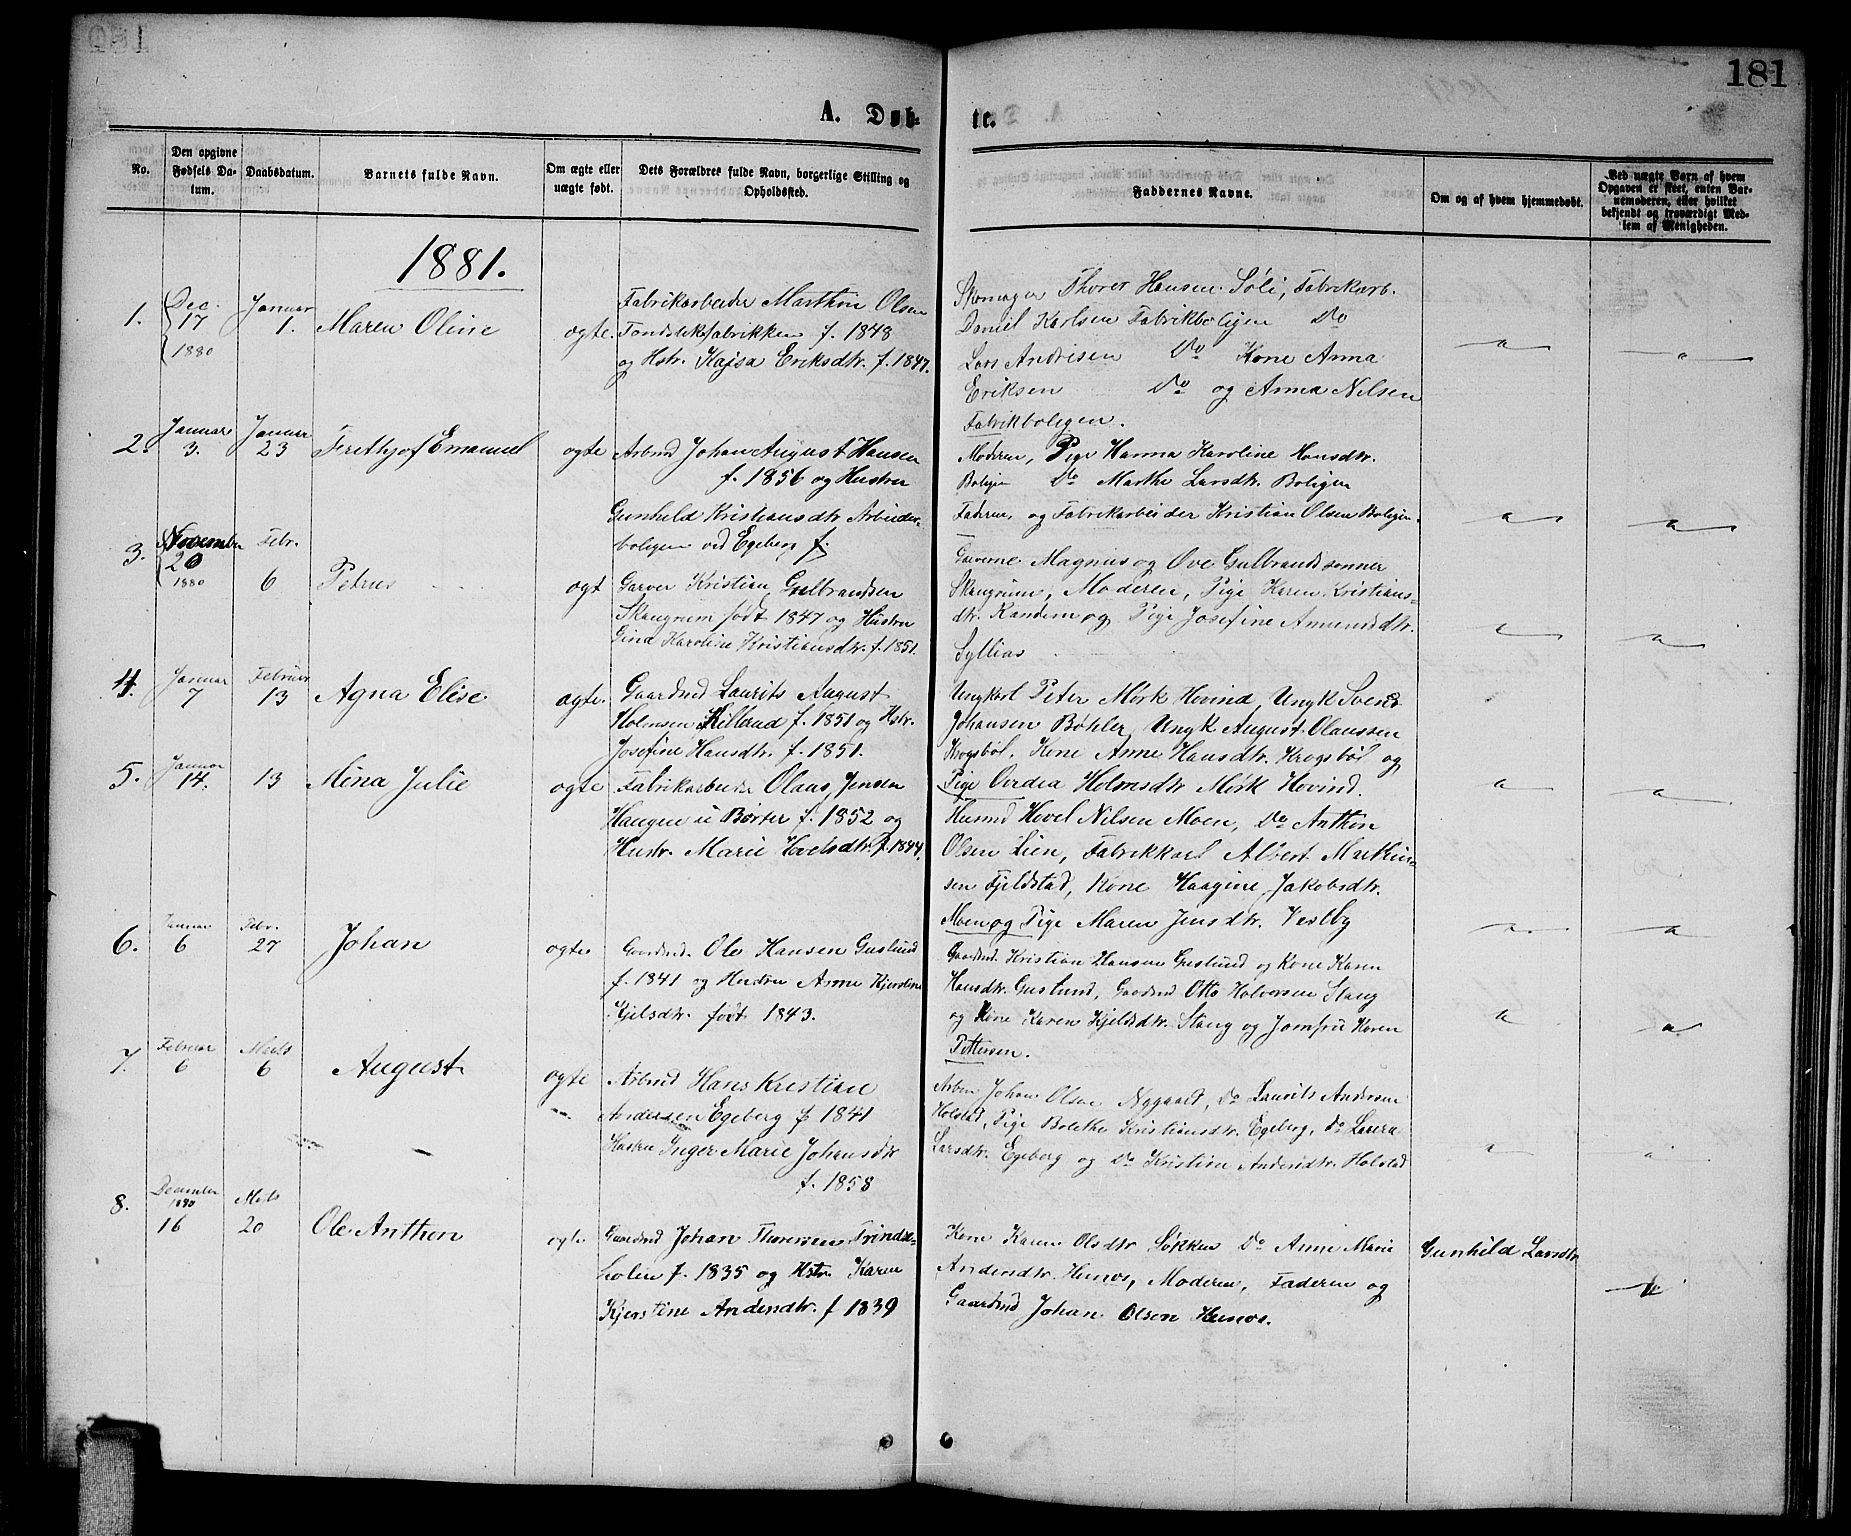 181
A. Døbte.
No.
Den opgivne Fødsels Datum.
Daabsdatum.
Barnets fulde Navn.
Om ægte eller uægte født.
Dets Forældres fulde Navn, borgerlige Stilling og Opholdssted.
Faddernes Navne.
Om og af hvem hjemmedøbt.
Ved uægte Børn af hvem Opgaven er skeet, enten Barnemoderen, eller hvilket bekjendt og troværdigt Medlem af Menigheden.
1881.
1. Dec. 17 1880
Januar 1.
Maren Oline
ægte.
Fabrikarbeider Marthin Olsen
Tændstikfabrikken f. 1848
og Hstr. Kajsa Eriksdtr. f. 1847.
Skomager Thorer Hansen Søli, Fabrikarb.
Daniel Karlsen Fabrikboligen Do
Lars Andrisen Do Kone Anna
Eriksen Do og Anna Nilsen
Fabrikboligen.
2. Januar 3.
Januar 23
Ferithjof Emanuel
ægte
Arbmd Johan August Hansen
f. 1856 og Hustru
Gunhild Kristiansdtr Arbeider-
boligen ved Egeberg f.
Moderen, Pige Hanna Karoline Hansdtr.
Boligen Do Marthe Larsdtr. Boligen
Faderen, og Fabrikarbeider Kristian Olsen Boligen.
3. November 20 1880
Febr. 6
Petrus
ægt
Garver Kristian Gulbrandsen
Skaugrum født 1847 og Hustru
Gina Karoline Kristiansdtr. f. 1851.
Garverne Magnus og Ove Gulbrandsønner
Skaugrum, Moderen, Pige Karen Kristians-
dtr. Randem og Pige Josefine Amundsdtr.
Syllias
4. Januar 7
Februar 13
Agna Elise
ægte.
Gaardmd Laurits August
Holmsen Killerud f. 1851 og Hstr.
Josefine Hansdtr. f. 1851.
Ungkarl Peter Mørk Hovind, Ungk Svend
Johansen Bøhler, Ungk August Olaussen
Krogsbøl, Kone Anne Hansdtr. Krogsbøl og
Pige Ovidia Holmsdtr Mørk Hovind.
5. Januar 14.
13
Mina Julie
ægte
Fabrikarbeider Olaus Jensen
Haugen u Børter f. 1852 og
Hustr. Marie Hovelsdtr f. 1844.
Husmd Hovel Nilsen Moen, Do Anthon
Olsen Lien, Fabrikkarl Albert Marthin-
sen Fjeldstad, Kone Haagine Jakobsdtr.
Moen og Pige Maren Jensdtr. Vestby
6. Januar 6
Febr. 27
Johan
ægte
Gaardmd. Ole Hansen Guslund
f. 1841 og Hustru Anne Kjerstine
Kjelsdtr. født 1843.
Gaardmd. Kristian Hansen Guslund og Kone Karen
Hansdtr. Guslund, Gaardmd Otto Halvorsen Stang
og Kone Karen Kjelsdtr. Stang og Jomfru Karen
Pettersen.
7. Februar 6
Marts 6
August
ægte
Arbmd Hans Kristian
Andersen Egeberg f 1841
Hustru Inger Marie Johansdtr
f. 1858
Arbm Johan Olsen Nygaard, Do Laurits Andersen
Holstad, Pige Bolethe Kristiansdtr. Egeberg, Do Laura
Larsdtr. Egeberg og Do Kristine Andersdtr. Holstad
8. December 1880 16
Marts 20
Ole Anthon
ægte
Gaardmd Johan Thoresen Trindt-
holen f. 1835 og Hstr. Karen
Kjerstine Andersdtr. f 1839
Kone Karen Olsdtr Løkken Do Anne Marie
Andersdtr. Hunos, Moderen, Faderen og
Gaardmd Johan Olsen Hunos.
Gunhild Larsdtr